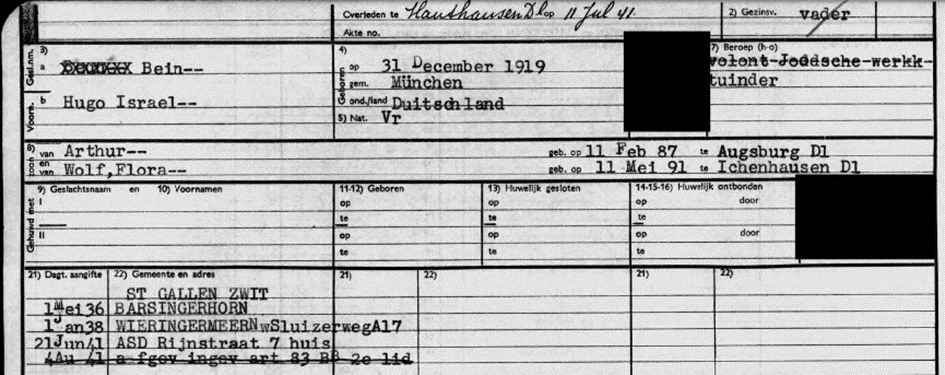 Overleden te Hauthausen Dl op 11 Jul 41. 2) Gezinsv. vader
Akte no.
3) 4) 7) Beroep (h-o)
Gesl.nm. a Bein-- Geboren op 31 December 1919 volont-Joodsche-werkk-
gem. München tuinder
Voorn. b Hugo Israel-- ond./land Duitschland
5) Nat. Vr
8) zoon van Arthur-- geb. op 11 Feb 87 te Augsburg Dl
en van Wolf,Flora-- geb. op 11 Mei 91 te Ichenhausen Dl
9) Geslachtsnaam en 10) Voornamen 11-12) Geboren 13) Huwelijk gesloten 14-15-16) Huwelijk ontbonden
Gehuwd met I op op op door
te te te
II op op op door
te te te
21) Dagt. aangifte 22) Gemeente en adres 21) 22) 21) 22)
ST GALLEN ZWIT
1Mei36 BARSINGERHORN
1Jan38 WIERINGERMEERNwSluizerwegA17
21Jun41 ASD Rijnstraat 7 huis
4Au 41 a fgev ingev art 83 BB 2e lid